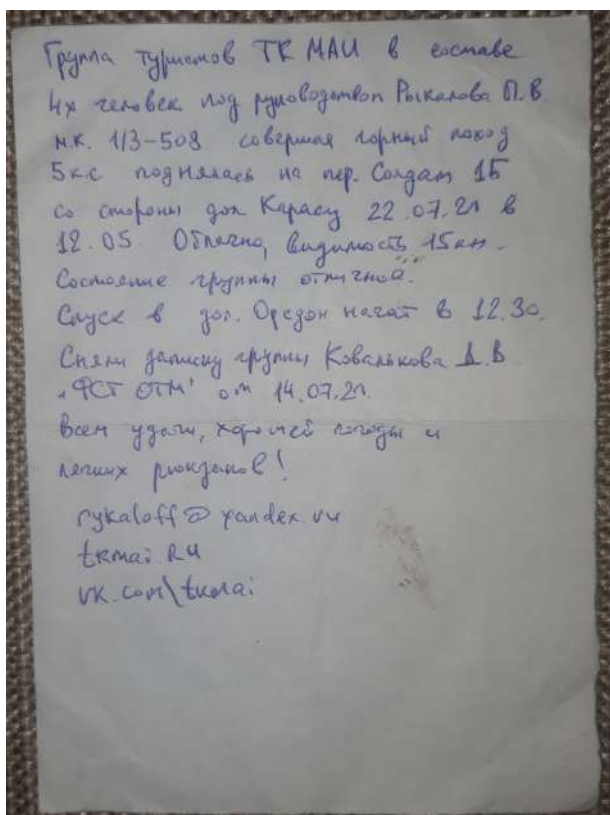 Группа туристов ТК МАИ в составе
4х человек под руководством Рыкалова П.В.
м.к. 1/3-508 совершая горный поход
5 к.с поднялась на пер. Солдат 1Б
со стороны дол Карасу 22.07.21 в
12.05. Облачно, видимость 15км.
Состояние группы отличное.
Спуск в дол. Орсдон начат в 12.30.
Сняли записку группы Ковалькова Д.В
"ФСТ ОТМ" от 14.07.21.
Всем удачи, хорошей погоды и
легких рюкзаков!
rykaloff@yandex.ru
tkmai.RU
vk.com\tkmai